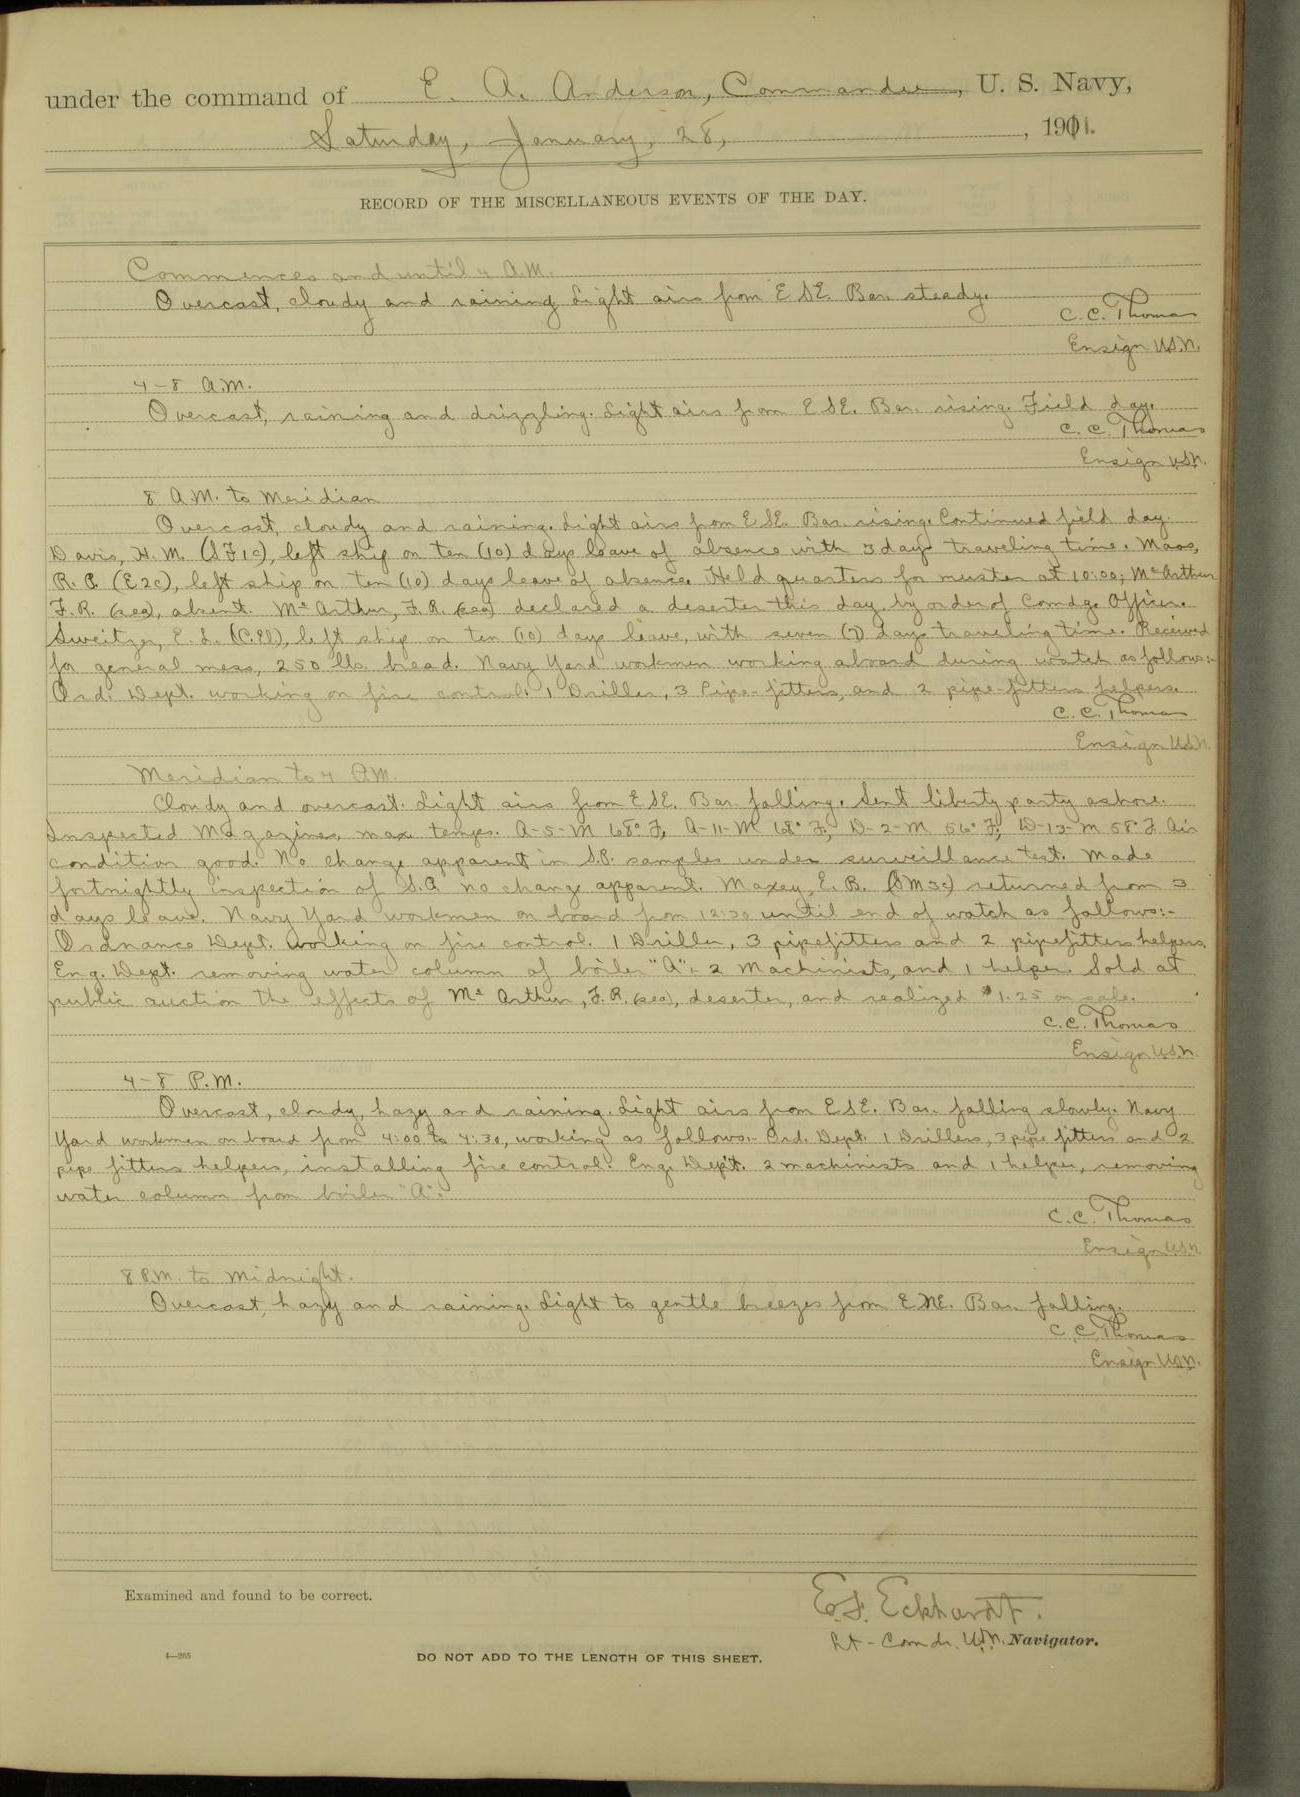 under the command of E. A. Anderson, Commander, U. S. Navy,
Saturday, January, 28, , 1911.
RECORD OF THE MISCELLANEOUS EVENTS OF THE DAY.
Commences and until 4 A.M.
Overcast, cloudy and raining. Light airs from ESE. Bar. steady.
C. C. Thomas
Ensign U.S.N.
4-8 A.M.
Overcast, raining and drizzling. Light airs from ESE. Bar. rising. Field day.
C. C. Thomas
Ensign U.S.N.
8 A.M. to Meridian
Overcast, cloudy and raining. Light airs from ESE. Bar. rising. Continued field day.
Davis, H. M. (SF1c), left ship on ten (10) days leave of absence with 3 days traveling time. Maas,
R. C. (E2c), left ship on ten (10) days leave of absence. Held quarters for muster at 10:00; McArthur
F. R. (sea), absent. McArthur, F. R. (sea) declared a deserter this day by order of Comdg. Officer.
Sweitzer, E. L. (C.El), left ship on ten (10) days leave, with seven (7) days traveling time. Received
for general mess, 250 lbs. bread. Navy Yard workmen working aboard during watch as follows:-
Ord. Dept. working on fire control. 1 Driller, 3 Pipe-fitters, and 2 pipe-fitters helpers.
C. C. Thomas
Ensign U.S.N.
Meridian to 4 P.M.
Cloudy and overcast. Light airs from ESE. Bar. falling. Sent liberty party ashore.
Inspected Magazines, max. temps. A-5-M 68° F, A-11-M 68° F; D-2-M 56° F; D-13-M 58° F. Air
condition good. No change apparent in S.P. samples under surveillance test. Made
fortnightly inspection of S.A. no change apparent. Maxey, E. B. (SM3c) returned from 3
days leave. Navy Yard workmen on board from 12:30 until end of watch as follows:-
Ordnance Dept. working on fire control. 1 Driller, 3 pipefitters and 2 pipefitters helpers.
Eng. Dept. removing water column of boiler "A":- 2 Machinists, and 1 helper. Sold at
public auction the effects of McArthur, F. R. (sea), deserter, and realized $1.25 on sale.
C. C. Thomas
Ensign U.S.N.
4-8 P.M.
Overcast, cloudy, hazy and raining. Light airs from ESE. Bar. falling slowly. Navy
Yard workmen on board from 4:00 to 4:30, working as follows:- Ord. Dept. 1 Drillers, 3 pipe fitters and 2
pipe fitters helpers, installing fire control. Eng. Dep't. 2 machinists and 1 helper, removing
water column from boiler "A".
C. C. Thomas
Ensign U.S.N.
8 P.M. to Midnight.
Overcast, hazy and raining. Light to gentle breezes from ENE. Bar. falling.
C. C. Thomas
Ensign U.S.N.
Examined and found to be correct.
E. F. Eckhardt.
Lt-Comdr. U.S.N. Navigator.
4—265
DO NOT ADD TO THE LENGTH OF THIS SHEET.